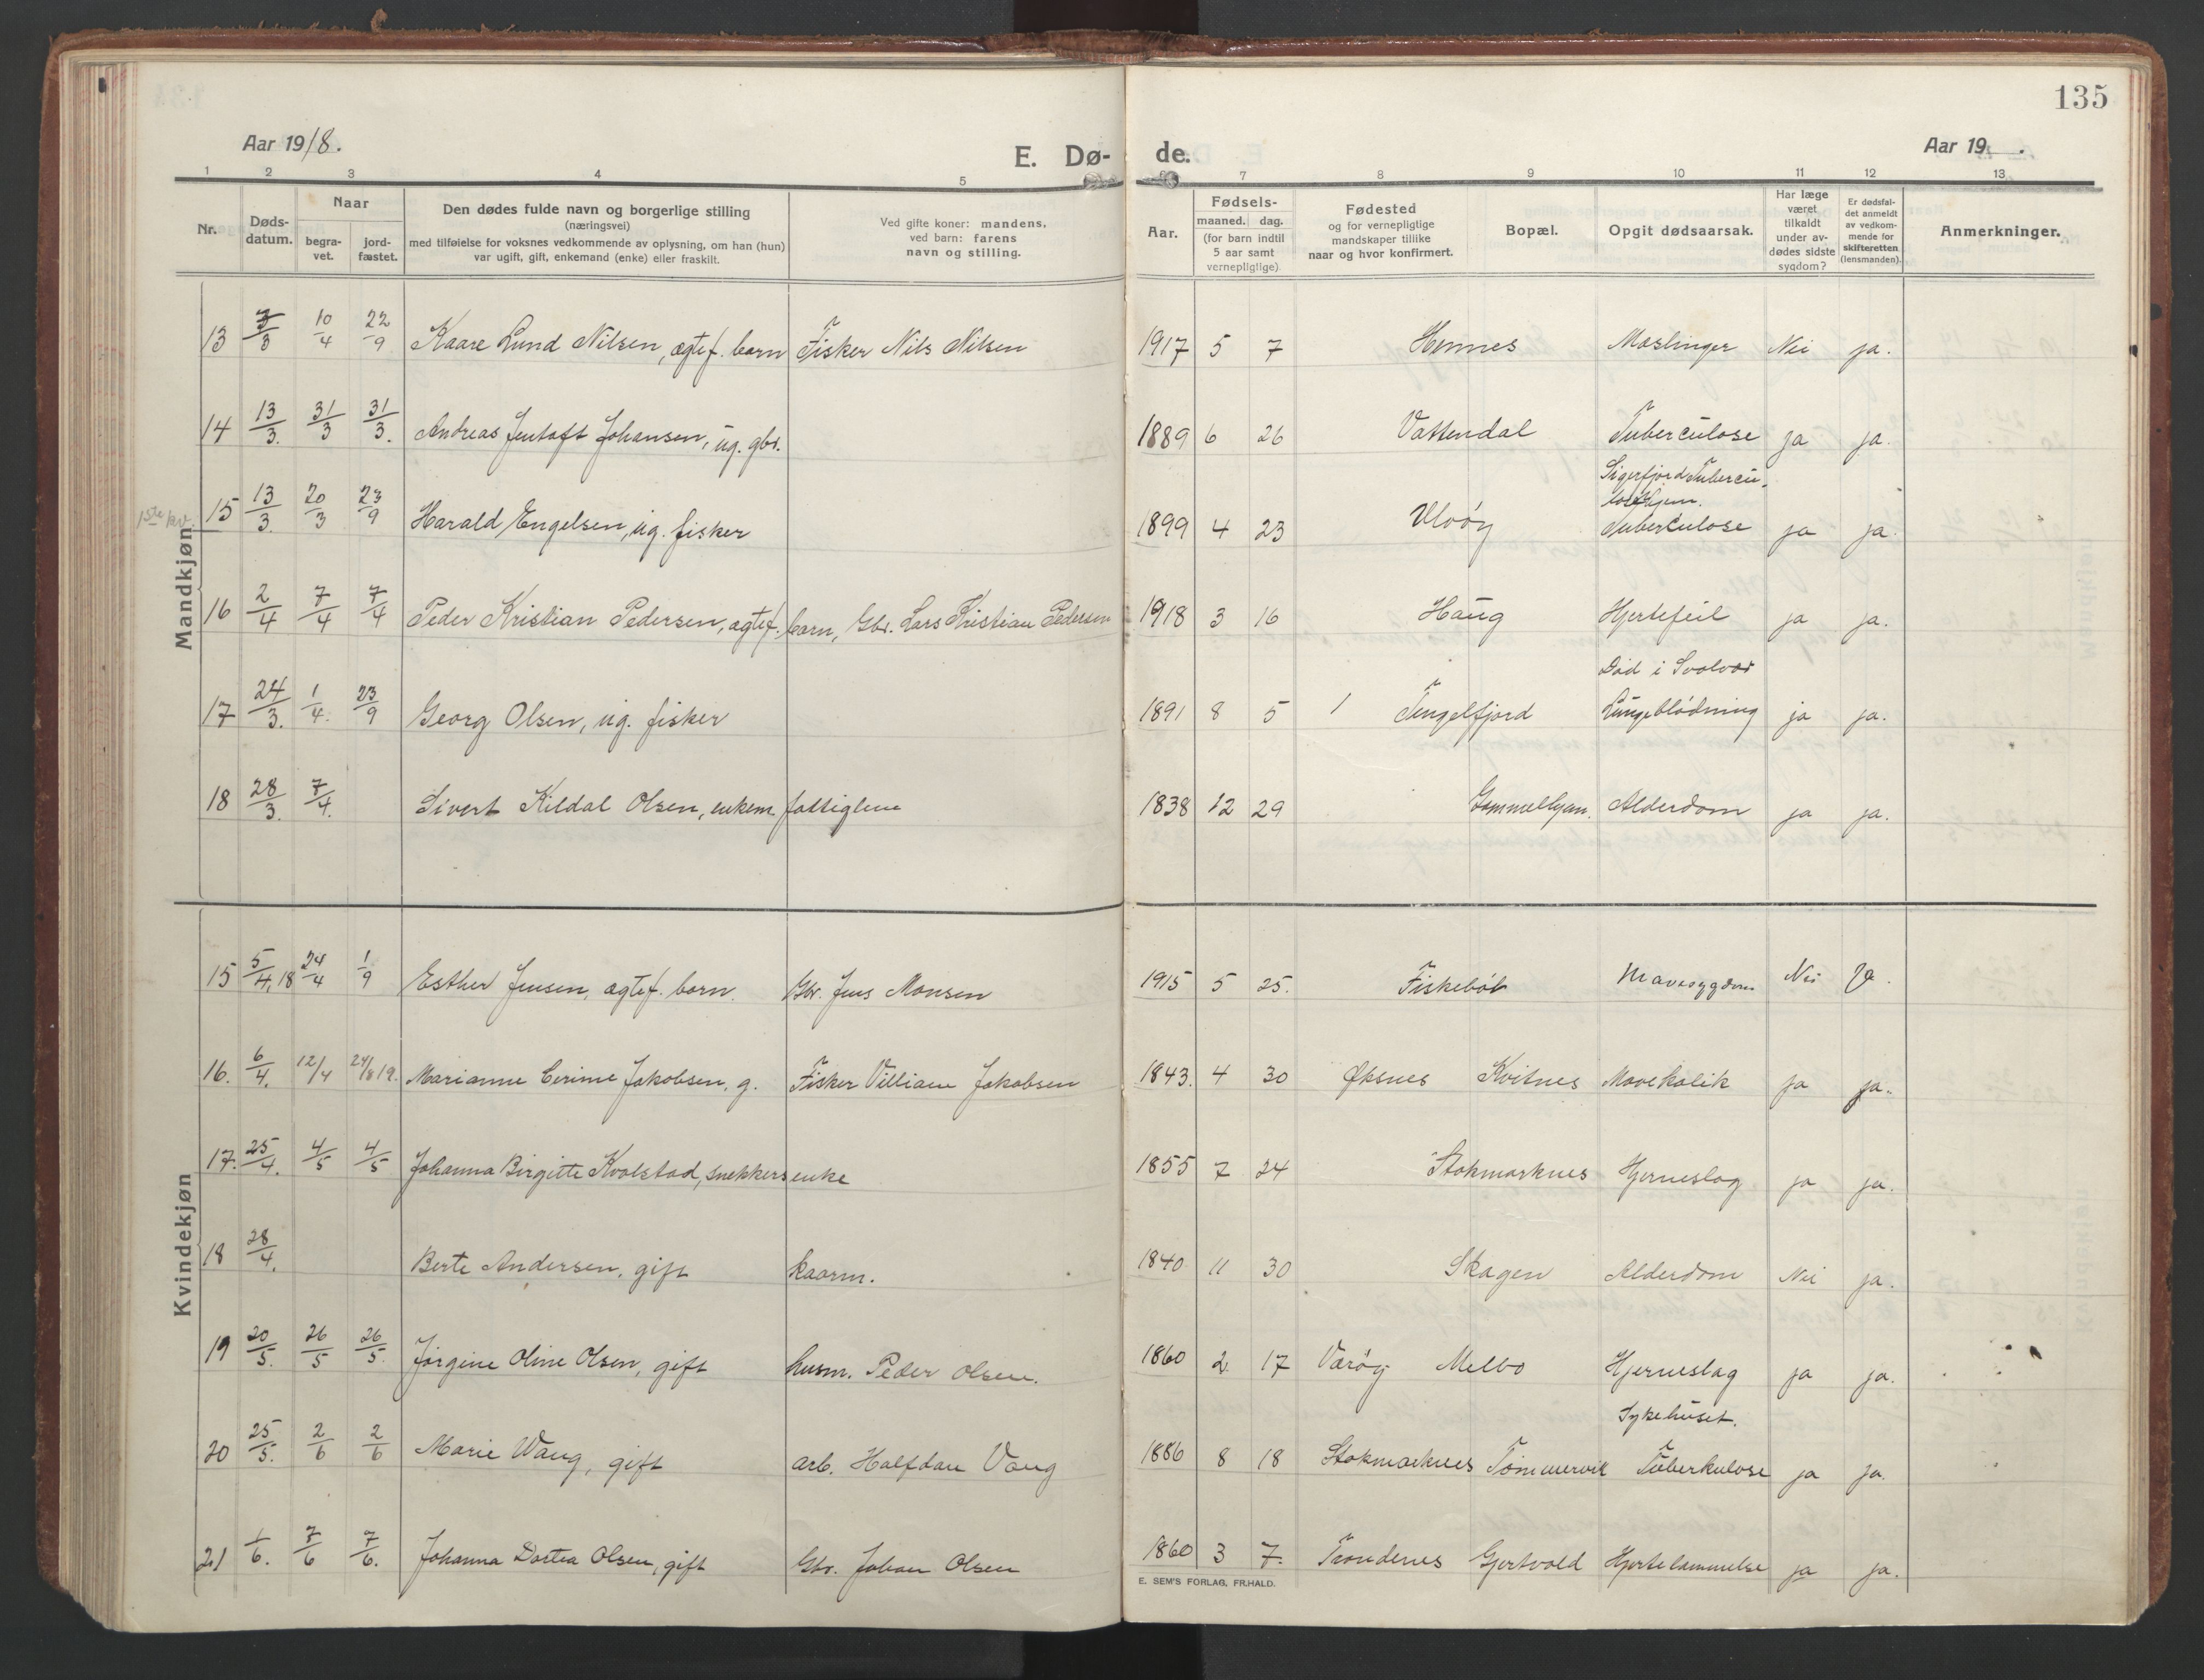 135
Aar 1918.
E. Dø-
de.
Aar 19 .
1 2 3 4 5
6 7 8 9 10 11 12 13
Nr.
Døds-
datum.
Naar
begra-
vet.
jord-
fæstet.
Den dødes fulde navn og borgerlige stilling
(næringsvei)
med tilføielse for voksnes vedkommende av oplysning, om han (hun)
var ugift, gift, enkemand (enke) eller fraskilt.
Ved gifte koner: mandens,
ved barn: farens
navn og stilling.
Aar.
Fødsels-
maaned. dag.
(for barn indtil
5 aar samt
vernepligtige)
Fødested
og for vernepligtige
mandskaper tillike
naar og hvor konfirmert.
Bopæl.
Opgit dødsaarsak.
Har læge
været
tilkaldt
under av-
dødes sidste
sygdom?
Er dødsfal-
det anmeldt
av vedkom-
mende for
skifteretten
(lensmanden).
Anmerkninger.
Mandkjøn
13 3/3 10/4 22/9 Kaare Lund Nilsen, ægtef. barn Fisker Nils Nilsen 1917 5 7 Hennes Meslinger Nei ja.
14 13/3. 31/3 31/3. Andreas Jentoft Johansen, ug. gbr. 1889 6 26 Vattendal Tuberculose ja ja.
Sigerfjord Tubercu-
losehjem.
1ste kv. 15 13/3. 20/3 23/9 Harald Engelsen, ug. fisker 1899 4 23 Ulvøy Tuberculose ja ja.
16 2/4 7/4 7/4 Peder Kristian Pedersen, ægtef. barn, Gbr. Lars Kristian Pedersen 1918 3 16 Haug Hjertefeil ja ja.
Død i Svolvær
17 24/3. 1/4. 23/9 Georg Olsen, ug. fisker 1891 8 5 1 Tengelfjord Lungeblødning ja ja.
18 28/3. 7/4. Sivert Kildal Olsen, enkem. fattiglem 1838 12 29 Gammelhjem. Alderdom ja ja.
Kvindekjøn
15 5/4.18 24/4 1/9 Esther Jensen, ægtef. barn. Gbr. Jens Monsen 1915 5 25. Fiskebøl Mavesygdom Nei Ja.
16. 6/4. 12/4 24/8 19. Marianne Cerine Jakobsen, g. Fisker Villiam Jakobsen 1843. 4 30 Øksnes Kvitnes Mavekolik ja ja.
17. 25/4. 4/5 4/5 Johanna Birgitte Kvalstad, snekkersenke 1855 7 24 Stokmarknes Hjerneslag ja ja.
18 28/4. Berte Andersen, gift kaarm. 1840 11 30 Skagen Alderdom Nei ja.
19 20/5. 26/5 26/5. Jørgine Oline Olsen, gift husm. Peder Olsen. 1860 2 17 Værøy Melbo Hjerneslag ja ja.
Sykehuset.
20 25/5. 2/6 2/6 Marie Wang, gift arb. Halfdan Vang 1886 8 18 Stokmarknes Tømmervik Tuberkulose ja ja.
21 1/6. 7/6 7/6. Johanna Dortea Olsen, gift Gbr. Johan Olsen 1860 3 7. Trondenes Gjertvold Hjertelammelse ja ja.
E. SEM'S FORLAG, FR.HALD.